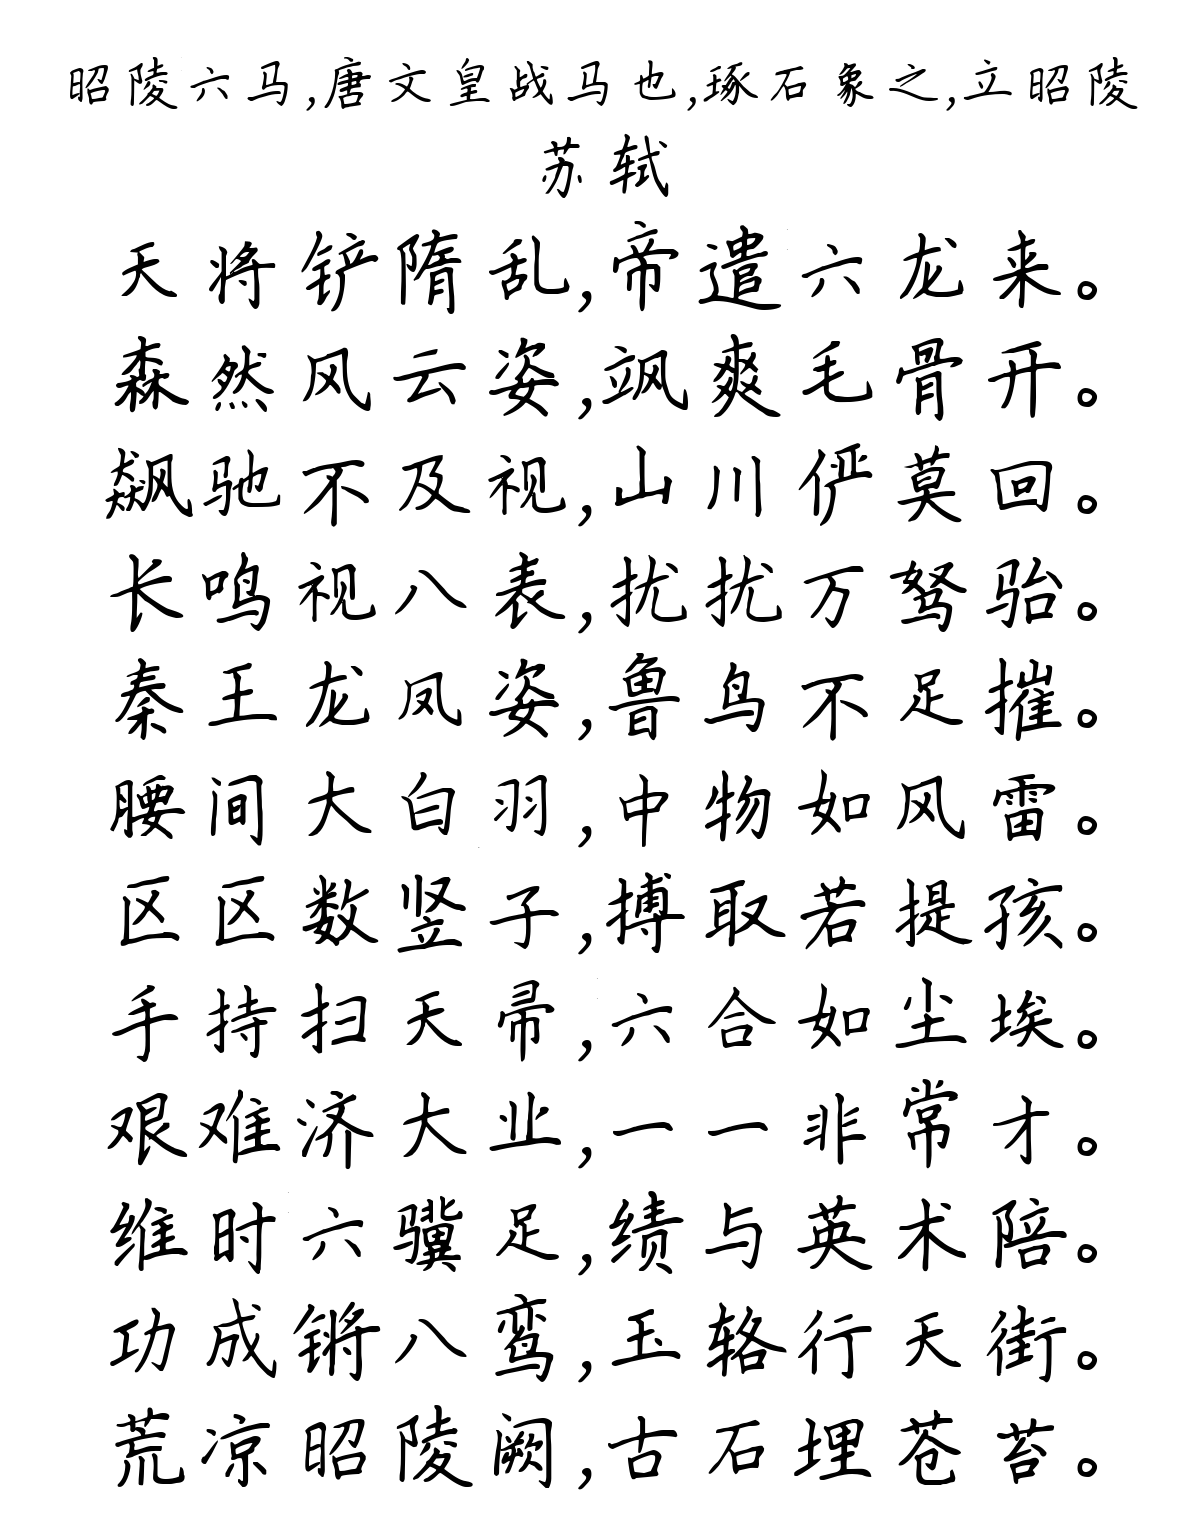 昭陵六马,唐文皇战马也,琢石象之,立昭陵
苏轼
天将铲隋乱,帝遣六龙来。
森然风云姿,飒爽毛骨开。
飙驰不及视,山川俨莫回。
长鸣视八表,扰扰万驽骀。
秦王龙凤姿,鲁鸟不足摧。
腰间大白羽,中物如风雷。
区区数竖子,搏取若提孩。
手持扫天帚,六合如尘埃。
艰难济大业,一一非常才。
维时六骥足,绩与英术陪。
功成锵八鸾,玉辂行天街。
荒凉昭陵阙,古石埋苍苔。